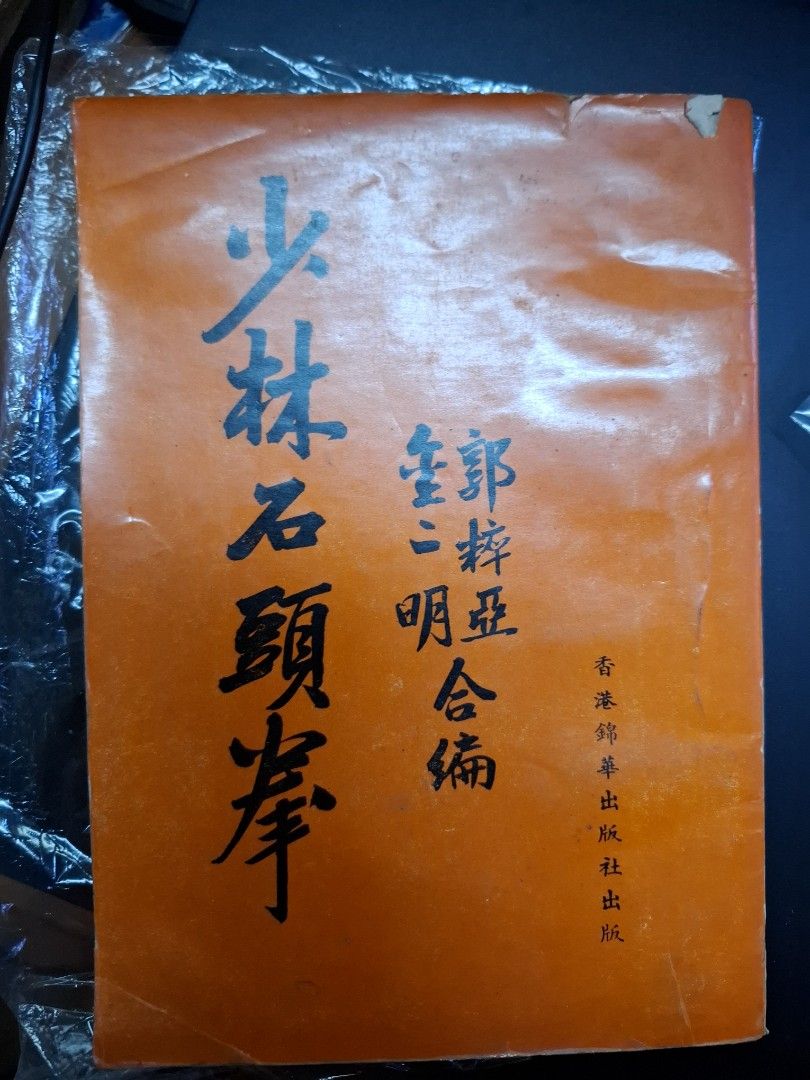 香港錦華出版社出版
郭粹亞
金一明
合編
少林石頭拳